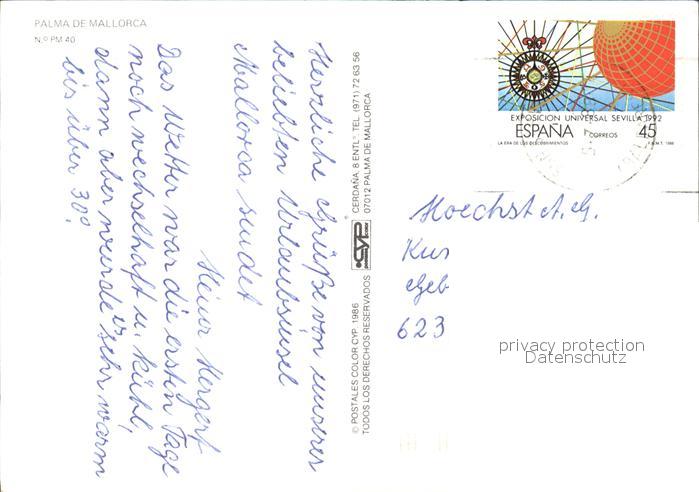 PALMA DE MALLORCA
N.º PM 40
Herzliche Grüße von unserer
beliebten Urlaubsinsel
Mallorca sendet
Heinz Hergert
Das Wetter war die ersten Tage
noch wechselhaft u. kühl,
dann aber wurde es sehr warm
bis über 30°.
© POSTALES COLOR CYP, 1986
TODOS LOS DERECHOS RESERVADOS
CYP
CERDAÑA, 8 ENTLº TEL. (971) 72 63 56
07012 PALMA DE MALLORCA
EXPOSICION UNIVERSAL SEVILLA 1992
ESPAÑA CORREOS 45
LA ERA DE LOS DESCUBRIMIENTOS F.N.M.T. 1988
Hoechst A.G.
Kus
Geb
623
privacy protection
Datenschutz